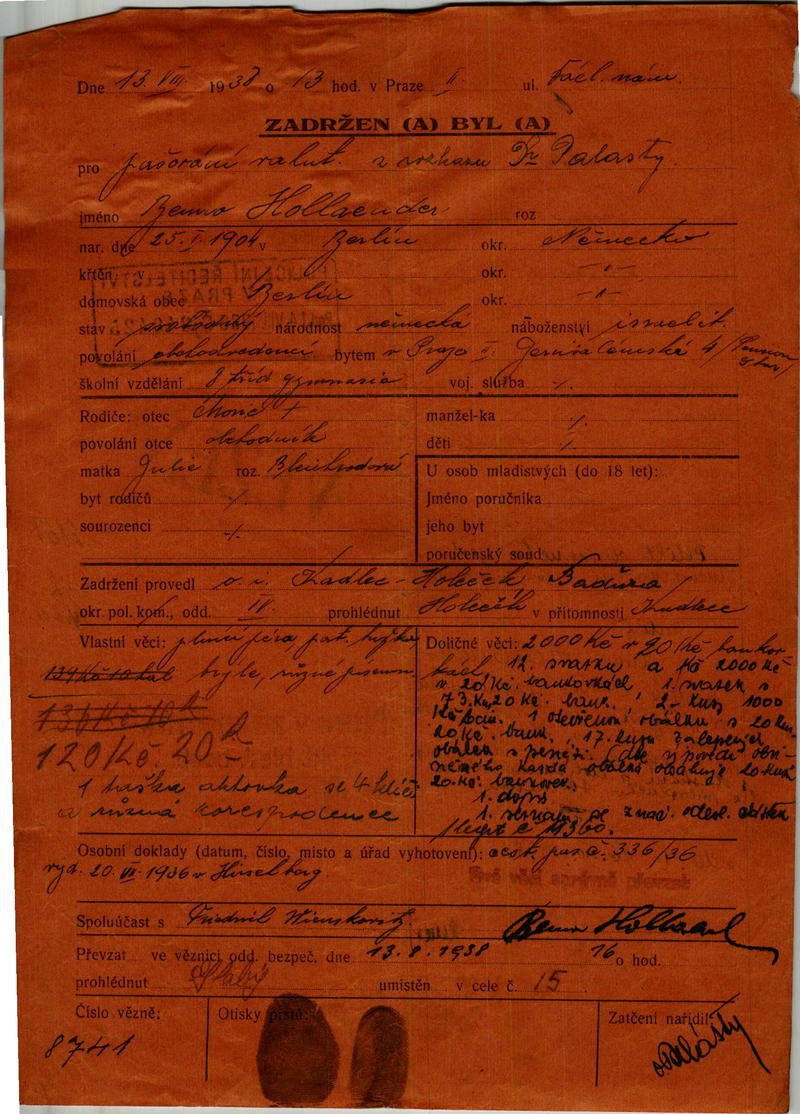 Dne 13. VIII. 1938 o 13 hod. v Praze II. ul. Fócl. nám.
ZADRŽEN (A) BYL (A)
pro pašování valut. z rozkazu Dr Palasty.
jméno Benno Hollaender roz
nar. dne 25. I. 1904 v Berlín okr. Německo
křtěn okr. -"-
domovská obec Berlín okr. -"-
stav svobodný národnost německá náboženství israelit.
povolání obchodvedoucí bytem v Praze II. Jerusalémská 4 /Pension
školní vzdělání 8 tříd gymnasia voj. služba ./.
Rodiče: otec Moric +
povolání otce obchodník
matka Julie roz. Bleichrodová
byt rodičů ./.
sourozenci ./.
manžel-ka ./.
děti ./.
U osob mladistvých (do 18 let):
Jméno poručníka
jeho byt
poručenský soud
Zadržení provedl o. i. Kadlec - Holeček Baďura
okr. pol. kom., odd. IV. prohlédnut Holeček v přítomnosti Kadlec
Vlastní věci: plnicí péra, pat. tužka,
139 Kč 10 hal brýle, různé písemn.
136 Kč 10 h
120 Kč. 20 h
1 taška aktovka se 4 klíči
a různá korespodence
Doličné věci: 2000 Kč v 20 Kč bankov-
kách, 12. svazku a Kč 2000 Kč
v 20 Kč. bankovkách, 1. svazek s
73. Kus 20 Kč. bank., 2 - Kusy 1000
Kč bank. 1 otevřenou obálku s 20 Kus.
20 Kč. bank., 17. Kusů zalepených
obálek s penězi (dle výpovědi obvi-
něného každá obálka obsahuje 20 Kusů
20 Kč. bankovek.
1. dopis
1. seznam se znač. odesl. částku
1 legit č 11360.
Osobní doklady (datum, číslo, místo a úřad vyhotovení): cest. pas č. 336/36
vyd. 20. VII. 1936 v
Své věci správně převzal:
Spoluúčast s Benno Hollaend
Převzat ve věznici odd. bezpeč. dne 13. 8. 1938 16 o hod.
prohlédnut umístěn v cele č. 15
Číslo vězně: Otisky prstů: Zatčení nařídil:
8741 Palásty